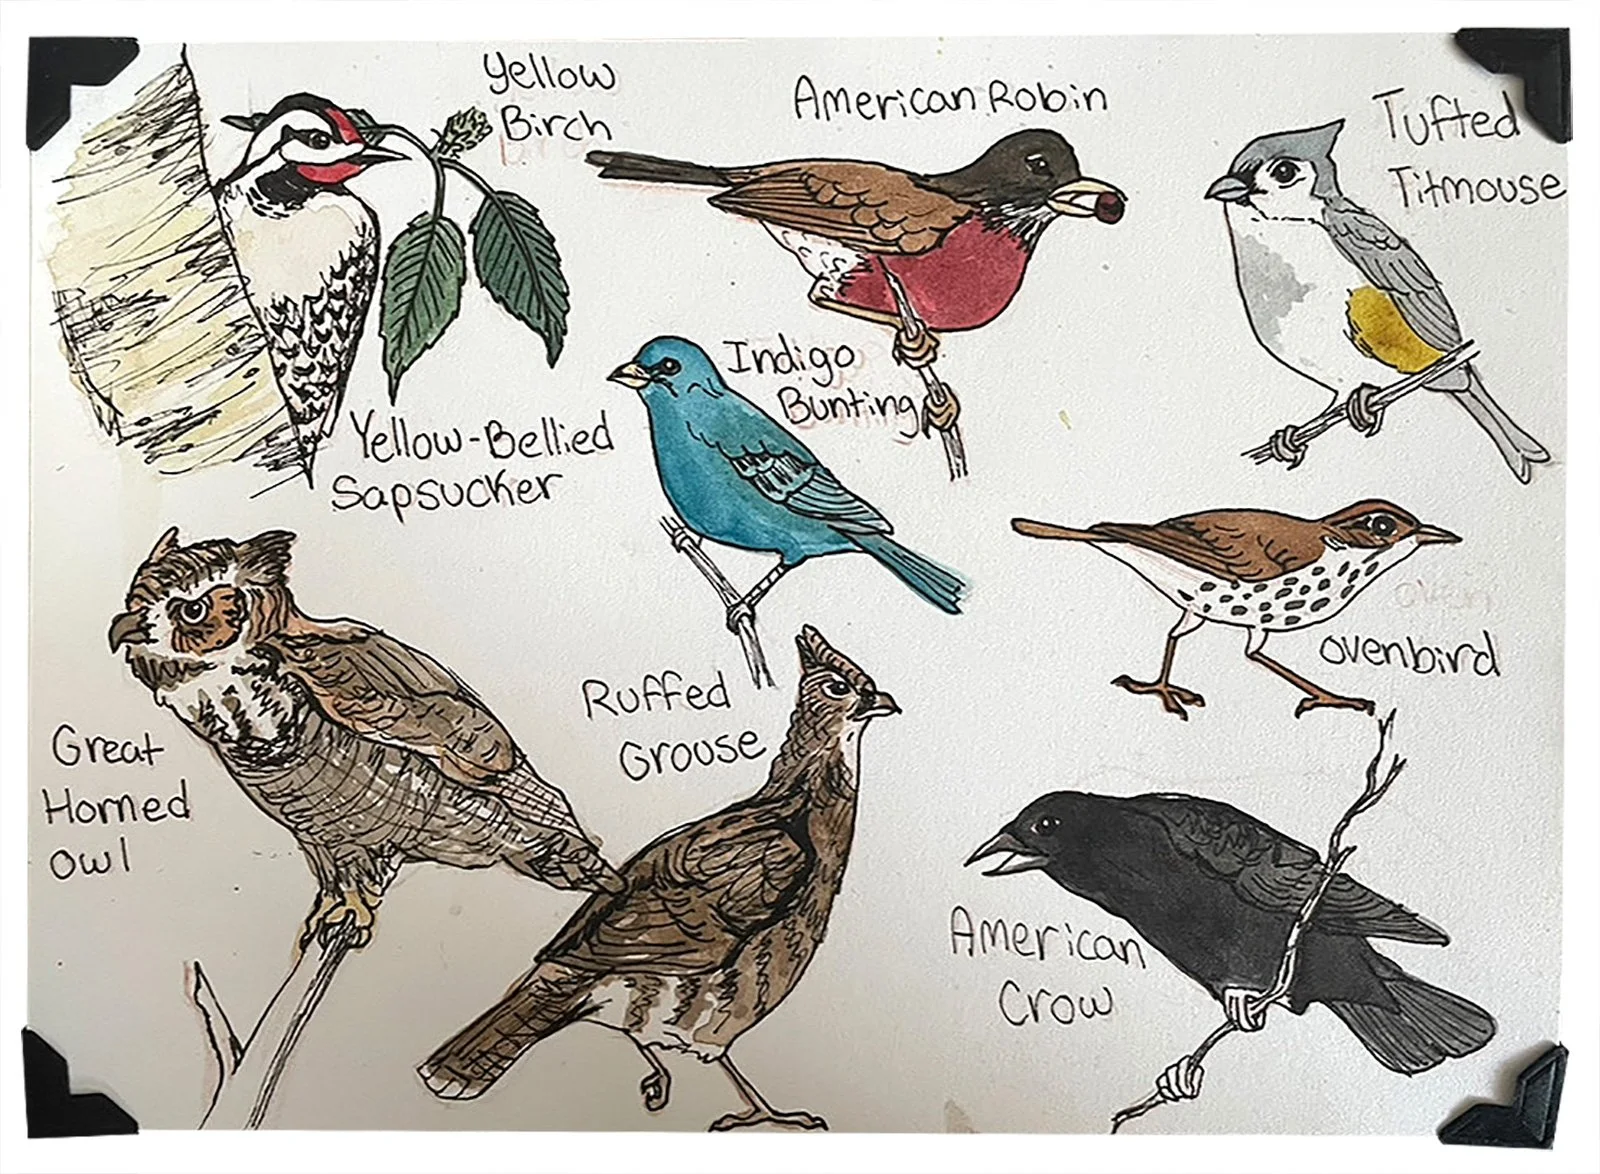 Yellow
Birch
American Robin
Tufted
Titmouse
Indigo
Bunting
Yellow-Bellied
Sapsucker
oven
ovenbird
Ruffed
Grouse
Great
Horned
Owl
American
Crow